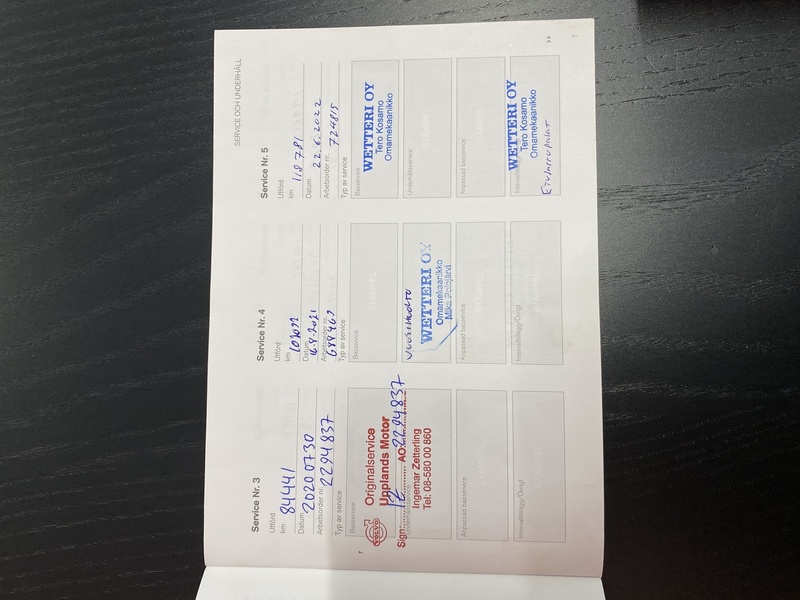 SERVICE OCH UNDERHÅLL
Service Nr. 3
Utförd
km 84441
Datum 20200730
Arbetsorder nr. 2294837
Typ av service
Basservice
Originalservice
Upplands Motor
VOLVO
Sign: AO: 2294837
Ingemar Zetterling
Tel: 08-580 00 860
Anpassad basservice
Intervalltillägg/Övrigt
Service Nr. 4
Utförd
km
Datum 16.4.2021
Arbetsorder nr.
Typ av service
Basservice
Vuosihuolto
WETTERI OY
Omamekaanikko
Anpassad basservice
Intervalltillägg/Övrigt
Service Nr. 5
Utförd
km 118 781
Datum 22.6.2022
Arbetsorder nr. 724815
Typ av service
Basservice
WETTERI OY
Tero Kosamo
Omamekaanikko
Underhållsservice
Anpassad basservice
WETTERI OY
Tero Kosamo
Omamekaanikko
Etujarrupalat
7